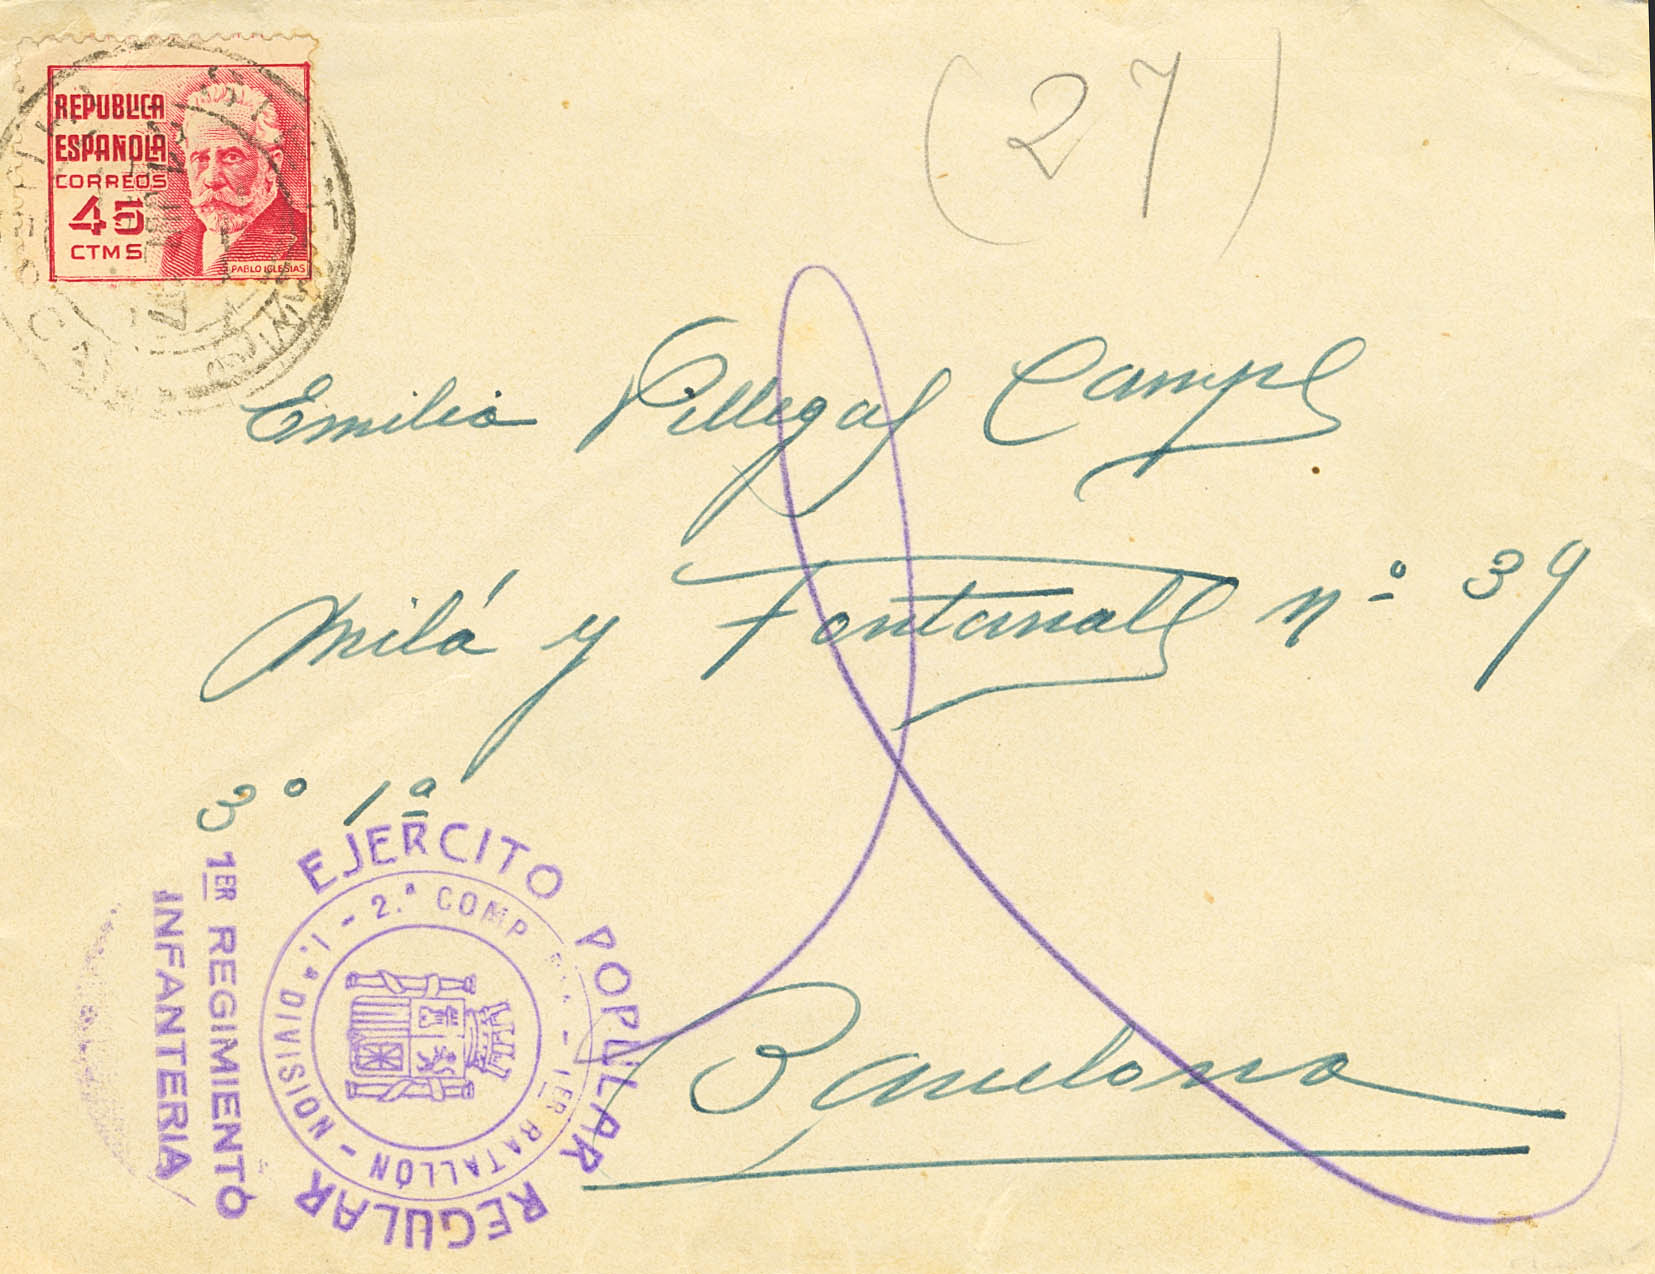 REPUBLICA
ESPAÑOLA
CORREOS
45
CTMS
PABLO IGLESIAS
(27)
Emilio Pillegal Camps
Milá y Fontanals nº 39
3º 1ª
Barcelona
EJERCITO POPULAR REGULAR
1.ª DIVISION - 2.ª COMP. - 1ER BATALLÓN -
1ER REGIMIENTO
INFANTERIA